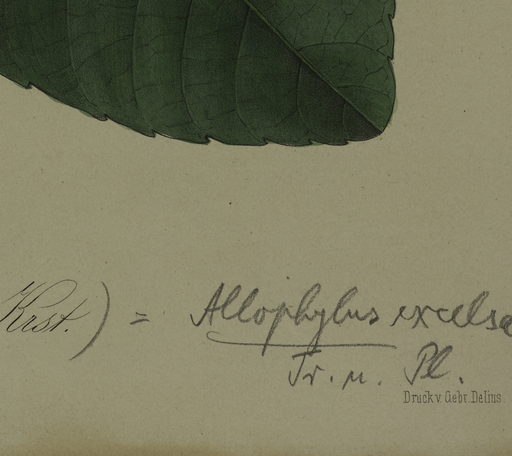 Krst.) = Allophylus excelsa
Tr. u. Pl.
Druck v. Gebr. Delius.